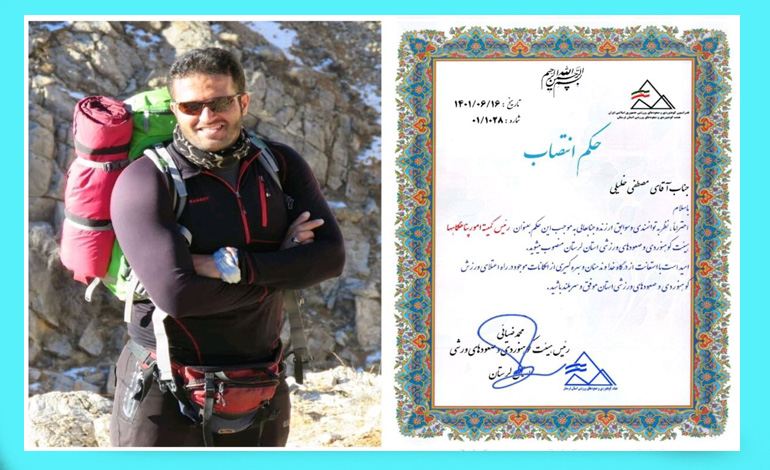 بسم الله الرحمن الرحیم
فدراسیون کوهنوردی و صعودهای ورزشی جمهوری اسلامی ایران
هیئت کوهنوردی و صعودهای ورزشی استان لرستان
تاریخ : ۱۴۰۱/۰۶/۱۶
شماره : ۰۱/۱۰۲۸
حکم انتصاب
جناب آقای مصطفی خلیلی
باسلام
احتراماً، نظر به توانمندی و سوابق ارزنده جنابعالی به موجب این حکم بعنوان رئیس کمیته امور پناهگاهها
هیئت کوهنوردی و صعودهای ورزشی استان لرستان منصوب میشوید.
امید است با استعانت از درگاه خداوند منان و بهره گیری از امکانات موجود در راه اعتلای ورزش
کوهنوردی و صعودهای ورزشی استان موفق و سربلند باشید.
رئیس هیئت کوهنوردی و صعودهای ورزشی
لرستان